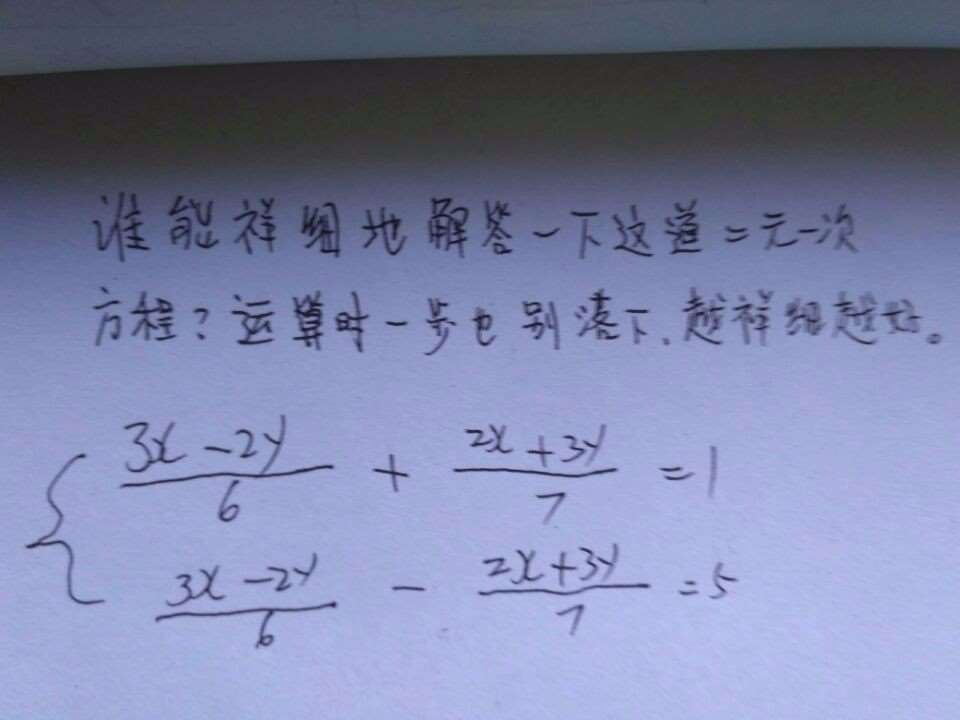 谁能祥细地解答一下这道二元一次
方程？运算时一步也别落下，越祥细越好。
{ (3x-2y)/6 + (2x+3y)/7 = 1
(3x-2y)/6 - (2x+3y)/7 = 5